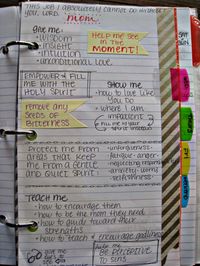 This job I absolutely cannot do without
you, Lord
mom.
Give me:
• wisdom
• insight
• intuition
• unconditional love
Help me see
in the
moment!
Empower & fill
me with the
Holy Spirit
Show me
• how to love like
You do
• where I am
impatient
remove any
seeds of
bitterness
Protect me from
areas that keep
me from a gentle
and quiet spirit.
- unforgiveness
- fatigue - anger
- anxiety
- selfishness
Teach me
• how to encourage them
• how to be the mom they need
• how to guide toward their
strengths
• how to teach & encourage godliness
make me
be perceptive
to sins